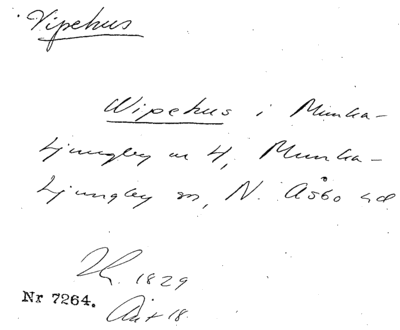 Vipehus
Wipehus i Munka-
Ljungby nr 4, Munka-
Ljungby sn, N. Åsbo hd
1829
Nr 7264.
Akt 18.